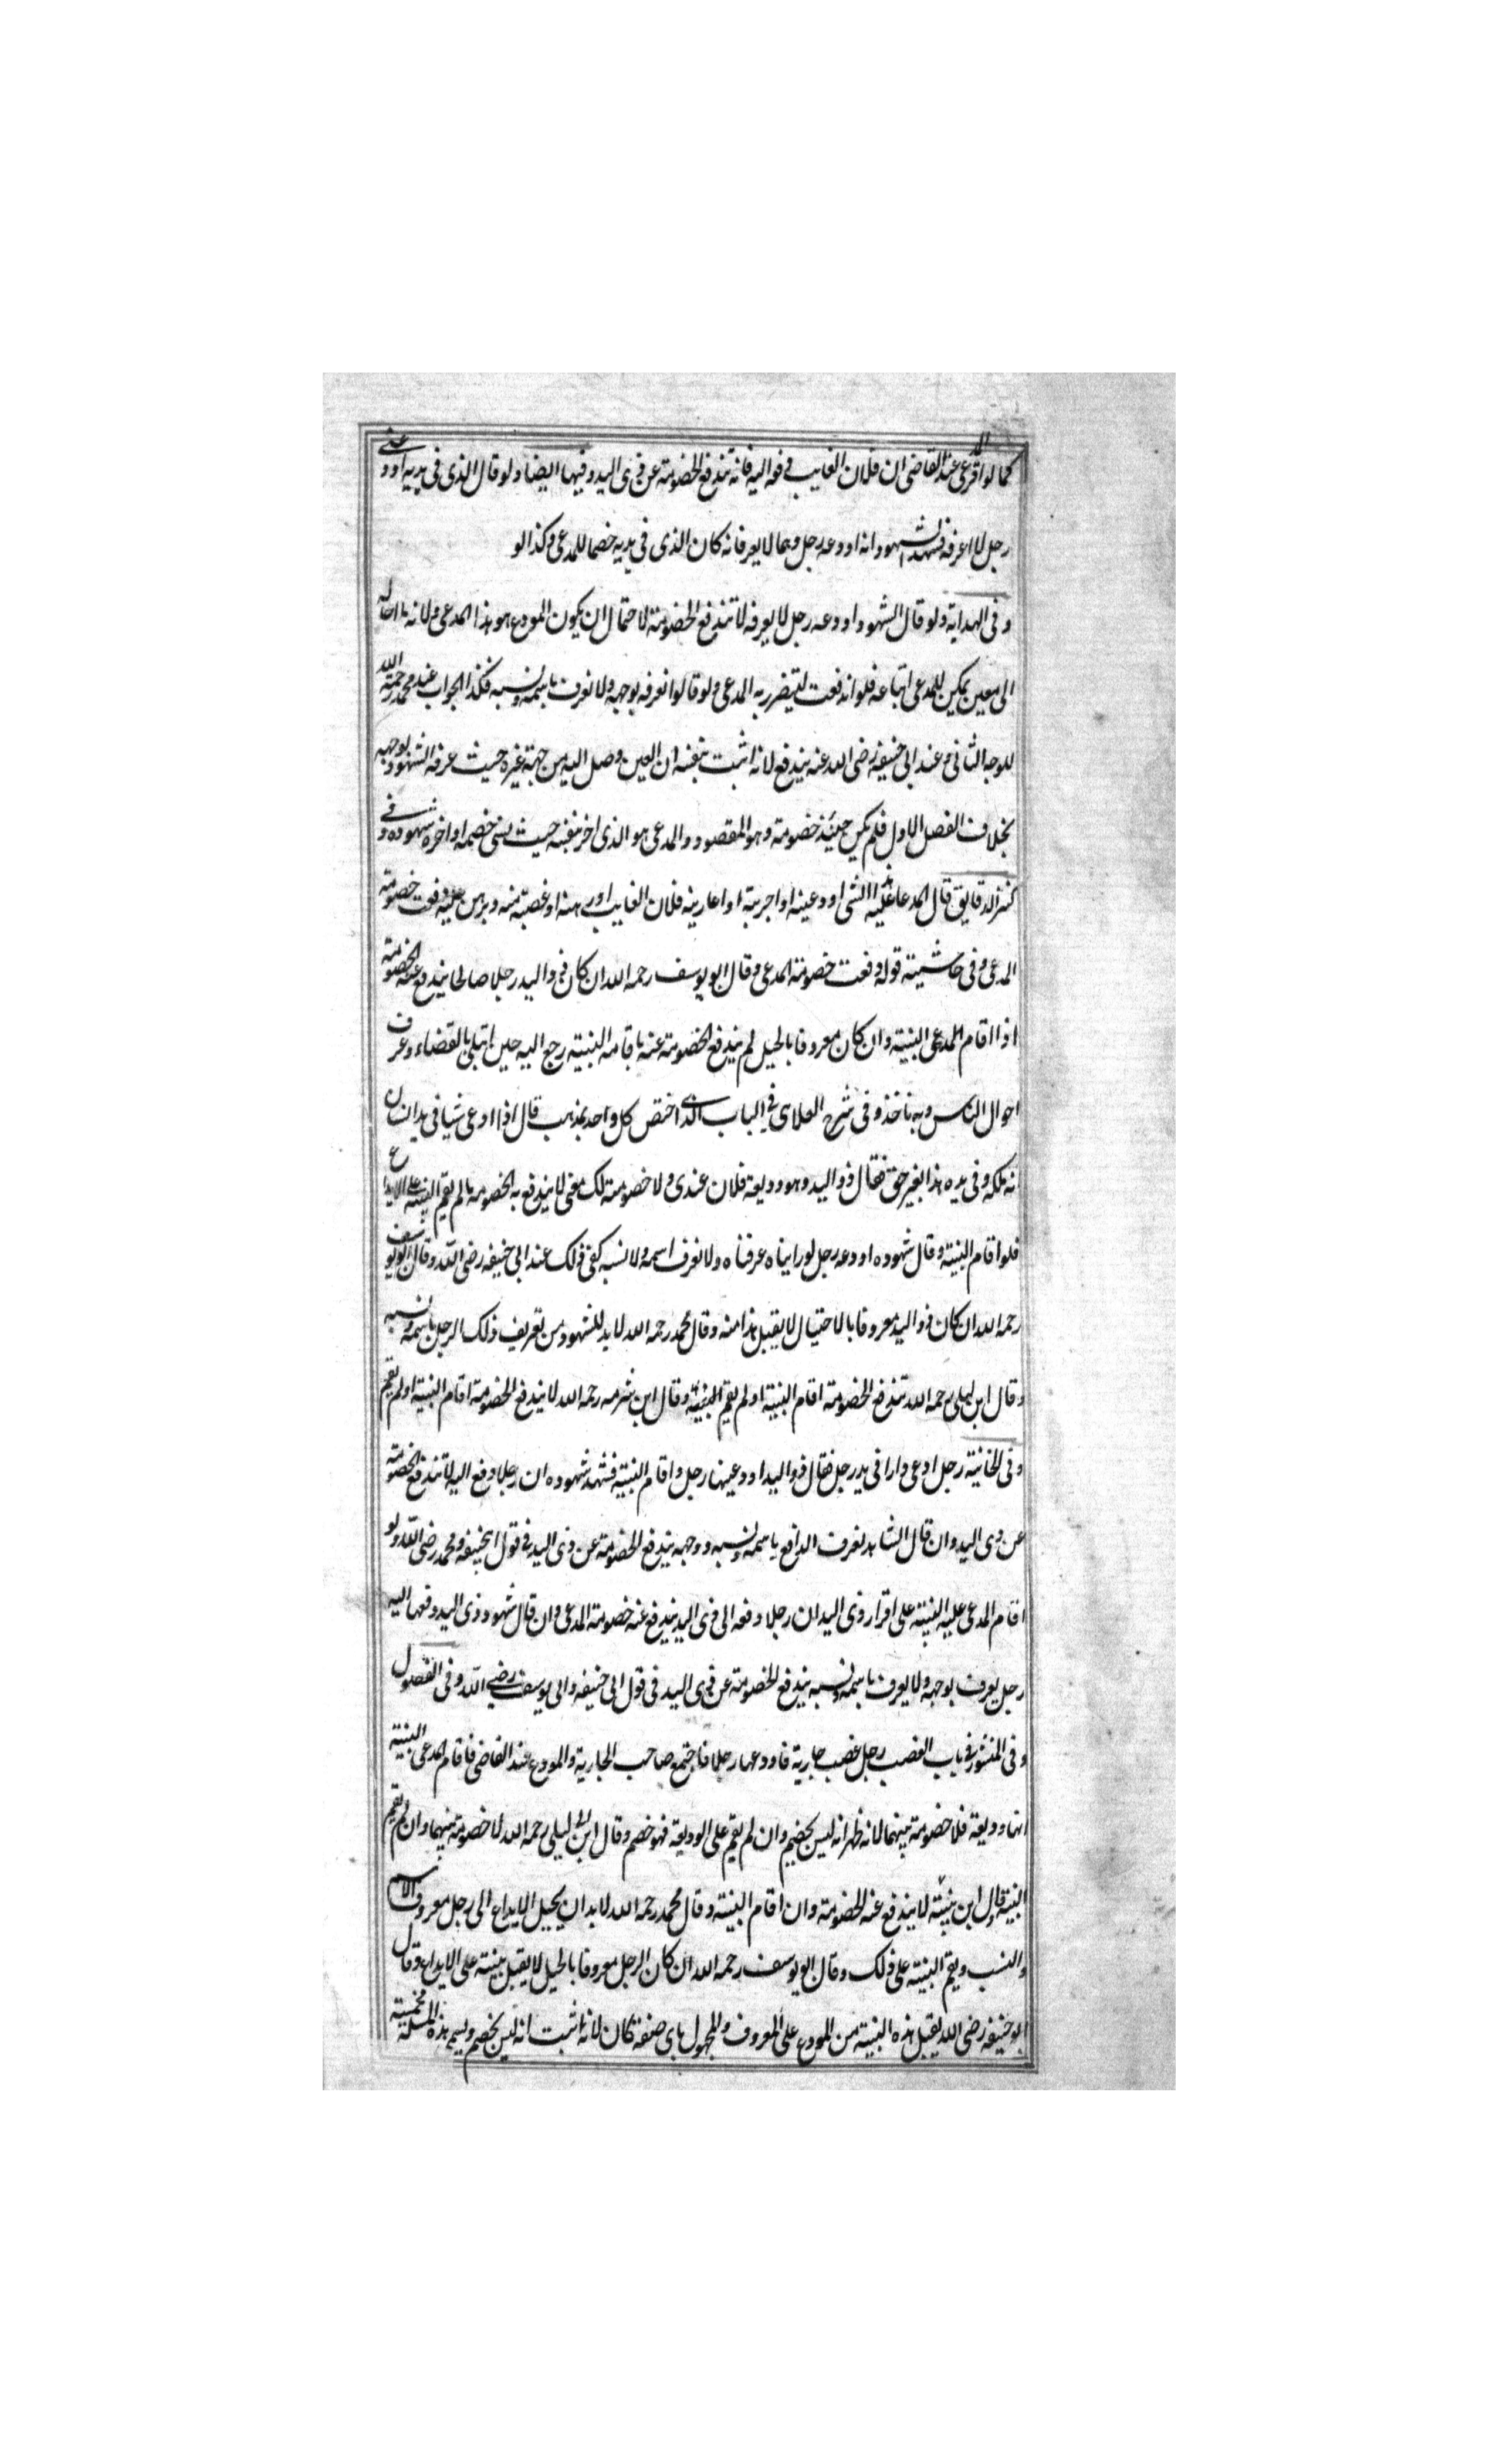 كما لو اقر المدعى عند القاضى ان فلان الغايب دفعه اليه فانه تندفع الخصومة عن ذى اليد وفيها ايضا ولو قال الذى فى يديه اودعنى
رجل لا اعرفه فشهد الشهود انه اودعه رجل وهما لا يعرفانه كان الذى فى يديه خصما للمدعى وكذا لو
وفى الهداية ولو قال الشهود اودعه رجل لا يعرفه لا تندفع الخصومة لاحتمال ان يكون المودع هو هذا المدعى ولانه ما احاله
الى معين يمكن للمدعى اتباعه فلو اندفعت لتضرر به المدعى ولو قالوا نعرفه بوجهه ولا نعرف باسمه ونسبه فكذا الجواب عند محمد رحمة الله
للوجه الثانى وعند ابى حنيفه رضى الله عنه يندفع لانه اثبت ببينه ان العين وصل اليه من جهة غيره حيث عرفه الشهود بوجهه
بخلاف الفصل الاول فلم يكن حينئذ خصومة وهو المقصود والمدعى هو الذى اضر بنفسه حيث نسى خصمه او اضره شهوده وفى
كنز الدقايق قال المدعا عليه هذا الشى اودعينه او اجرنيه او اعارنيه فلان الغايب او رهنه او غصبته منه وبرهن عليه دفعت خصومة
المدعى وفى حاشيته قوله دفعت خصومة المدعى وقال ابو يوسف رحمه الله ان كان ذو اليد رجلا صالحا يندفع عنه الخصومة
اذا اقام المدعى البنية وان كان معروفا بالحيل لم يندفع الخصومة عنه باقامه البنية رجع اليه حين ابتلى بالقضاء وعرف
احوال الناس وبه ناخذ وفى شرح العلاى فى الباب الذى اختص كل واحد بمذهب قال اذا ادعى شيا فى يد انسان
انه ملكه وفى يده هذا بغير حق فقال ذو اليد وهو وديعة فلان عندى ولا خصومة لك معى لا يندفع به الخصومه ما لم يقم البنية على الايداع
فلو اقام البنية وقال شهوده اودعه رجل لو رايناه عرفناه ولا نعرف اسمه ولا نسبه كفى ذلك عند ابى حنيفه رضى الله وقال ابو يوسف
رحمه الله ان كان ذو اليد معروفا بالاحتيال لا يقبل هذا منه وقال محمد رحمه الله لابد للشهود من تعريف ذلك الرجل باسمه ونسبه
وقال ابن ابى ليلى رحمه الله تندفع الخصومة اقام البنية او لم يقم البنية وقال ابن شرمه رحمه الله لا يندفع الخصومة اقام البنية او لم يقم
وفى الخانية رجل ادعى دارا فى يد رجل فقال ذو اليد اودعينها رجل واقام البنية فشهد شهوده ان رجلا دفع اليه لا تندفع الخصومة
عن ذى اليد وان قال الشاهد نعرف الدافع باسمه ونسبه ووجهه يندفع الخصومة عن ذى اليد فى قول ابيحنيفه ومحمد رضى الله ولو
اقام المدعى عليه البنية على اقرار ذى اليد ان رجلا دفعه الى ذى اليد يندفع عنه خصومة المدعى وان قال شهود ذى اليد دفعها اليه
رجل يعرف بوجهه ولا يعرف باسمه ونسبه يندفع الخصومة عن ذى اليد فى قول ابى حنيفه وابى يوسف رضى الله وفى الفصول
وفى المنثور فى باب الغصب رجل غصب جارية فاودعها رجلا فاجتمع صاحب الجارية والمودع عند القاضى فاقام المدعى البنية
انها وديعة فلا خصومة بينهما لانه ظهر انه ليس بخصم وان لم يقم على الوديعة فهو خصم وقال ابن ابى ليلى رحمه الله لا خصومة بينهما وان لم يقم
البنية وقال ابن لا يندفع عنه الخصومة وان اقام البنية وقال محمد رحمه الله لابد ان يحيل الايداع الى رجل معروف الاسم
والنسب ويقم البنية على ذلك وقال ابو يوسف رحمه الله ان كان الرجل معروفا بالحيل لا يقبل بينته على الايداع وقال
ابو حنيفه رضى الله يقبل هذه البنية من المودع على المعروف والمجهول باى صفة كان لانه اثبت انه ليس بخصم ويسمى هذه المسلة مخمسة